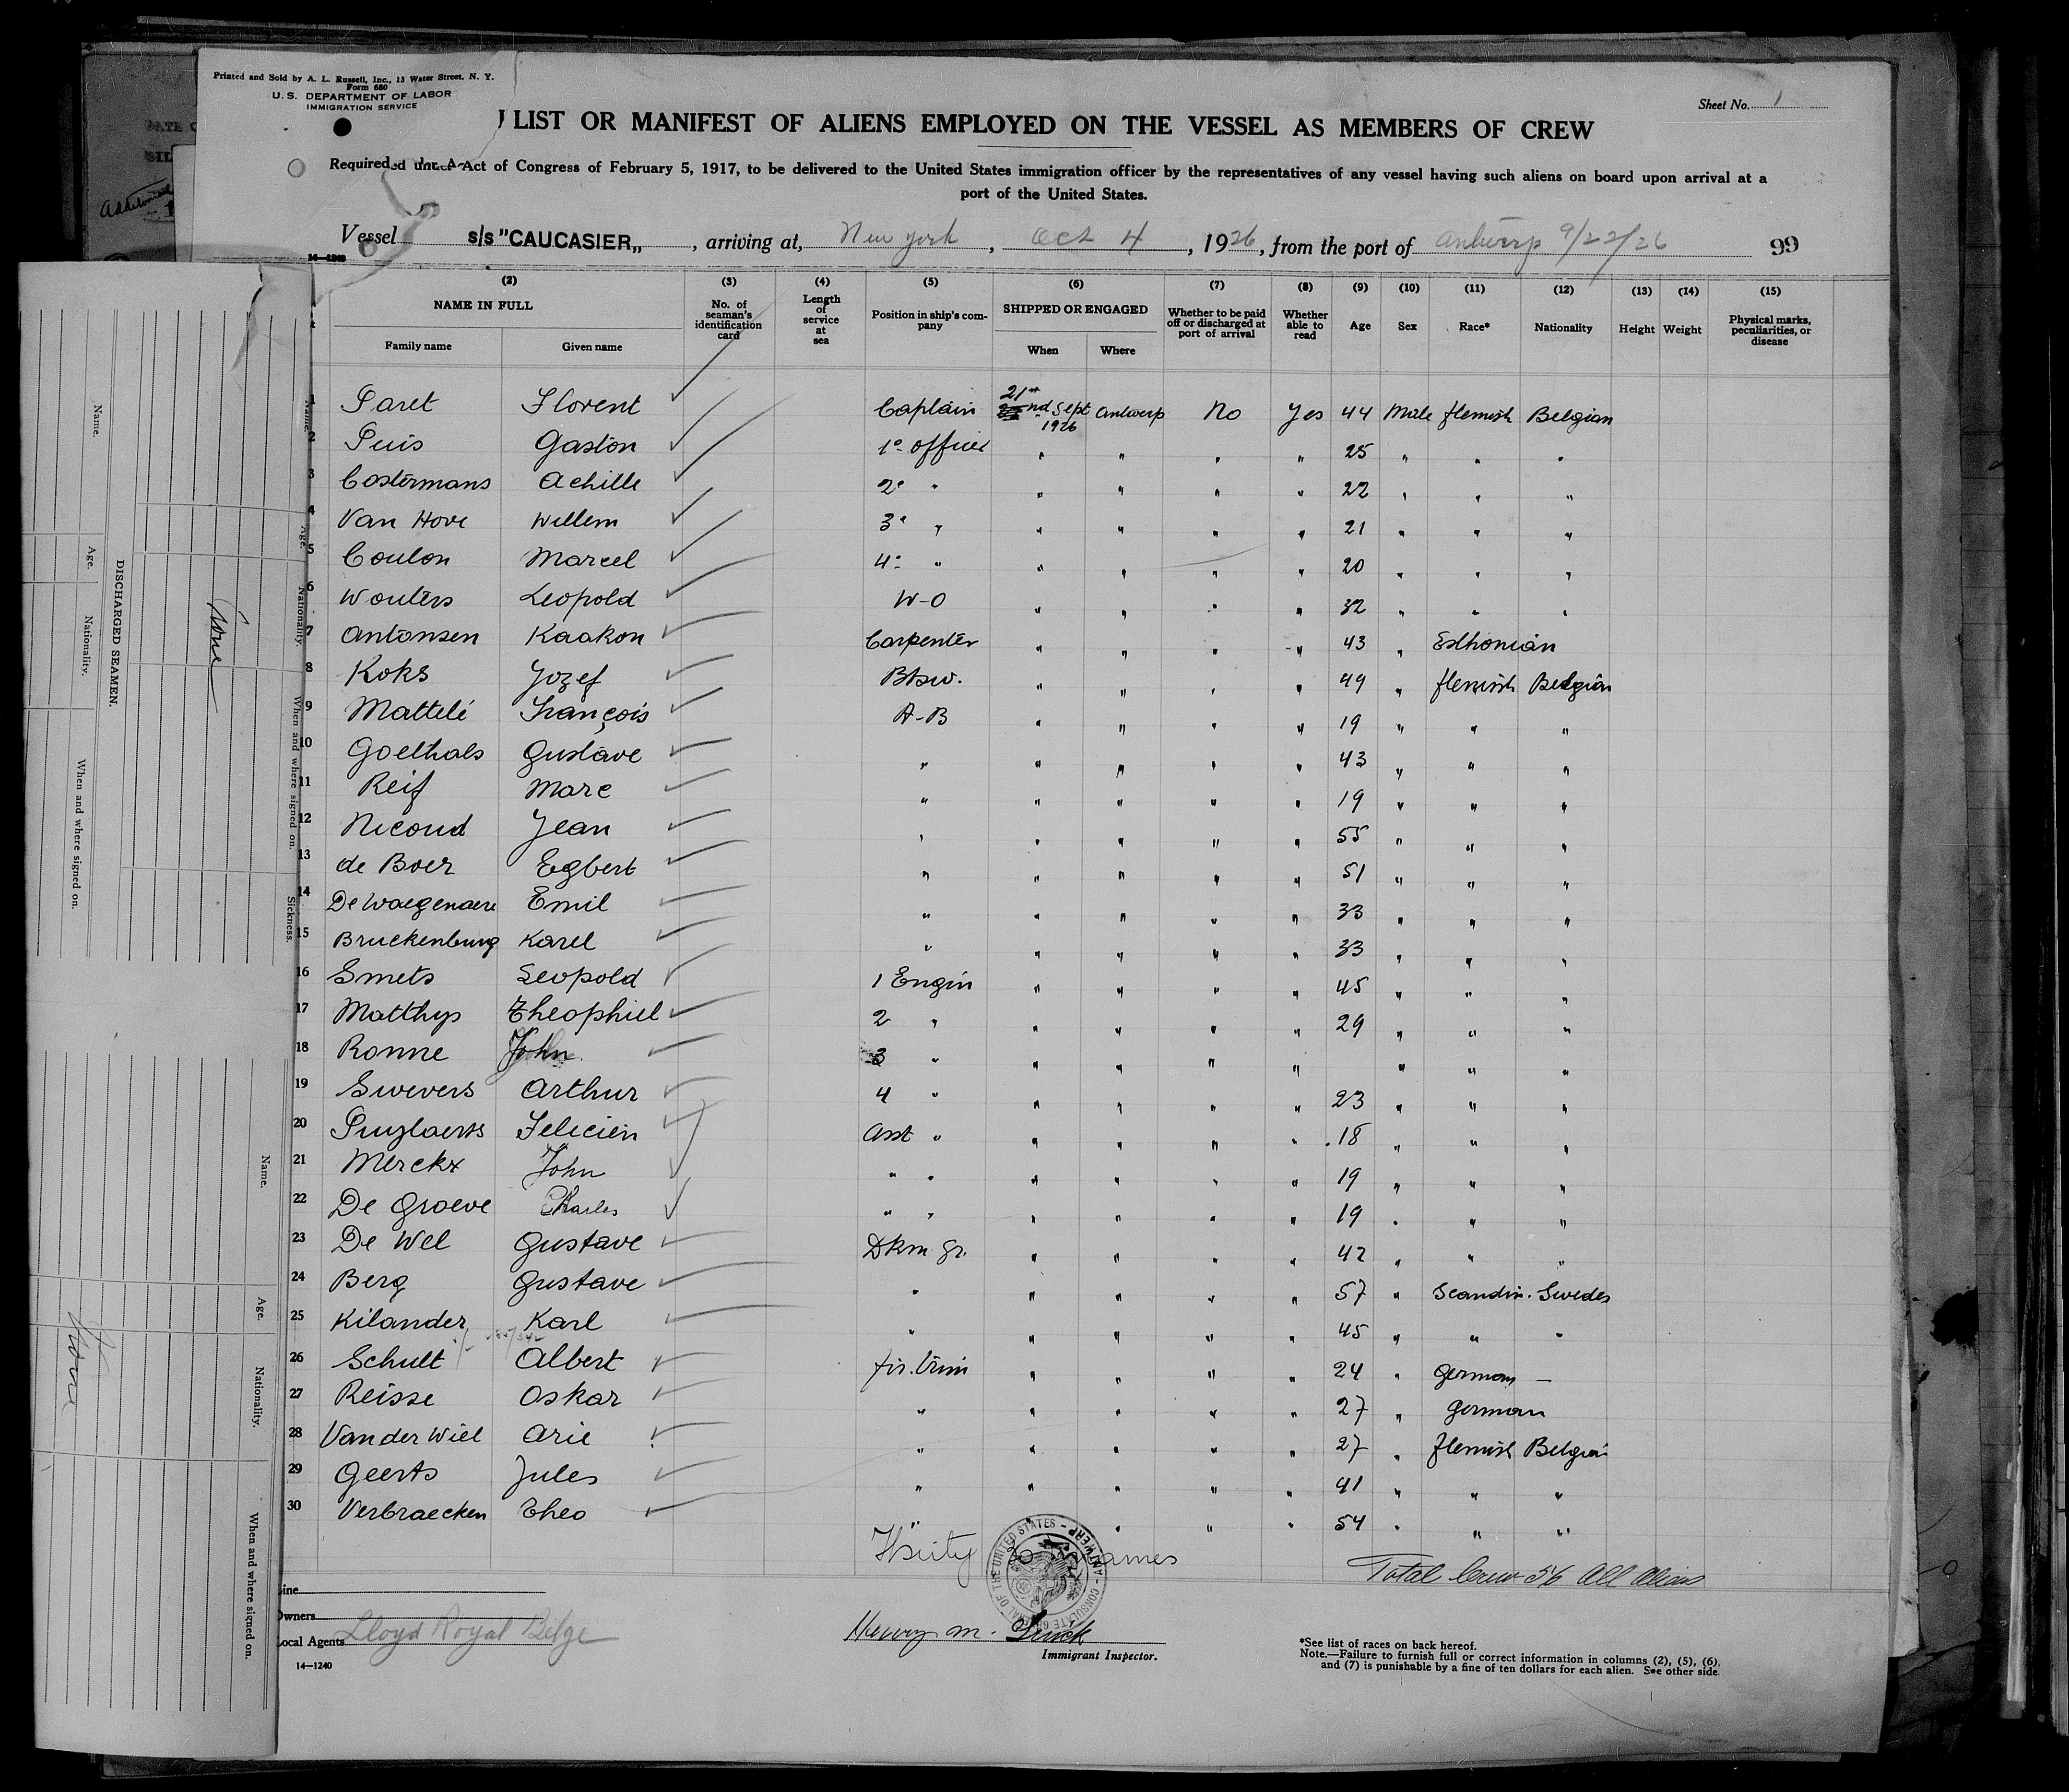 Printed and Sold by A. L. Russell, Inc., 13 Water Street, N. Y.
Form 680
U. S. DEPARTMENT OF LABOR
IMMIGRATION SERVICE
Sheet No. 1
LIST OR MANIFEST OF ALIENS EMPLOYED ON THE VESSEL AS MEMBERS OF CREW
Required under Act of Congress of February 5, 1917, to be delivered to the United States immigration officer by the representatives of any vessel having such aliens on board upon arrival at a
port of the United States.
Vessel s/s "CAUCASIER„ , arriving at, New York , Oct 4 , 1926, from the port of Antwerp 9/22/26 99
14—1240
(2) (3) (4) (5) (6) (7) (8) (9) (10) (11) (12) (13) (14) (15)
NAME IN FULL No. of seaman's identification card Length of service at sea Position in ship's company SHIPPED OR ENGAGED Whether to be paid off or discharged at port of arrival Whether able to read Age Sex Race* Nationality Height Weight Physical marks, peculiarities, or disease
Family name Given name When Where
1 Paret Florent Captain 21st nd Sept 1926 Antwerp No Yes 44 Male flemish Belgian
2 Puis Gaston 1° officer " " " " 25 " " "
3 Costermans Achille 2° " " " " " 22 " " "
4 Van Hove Willem 3° " " " " " 21 " " "
5 Coulon Marcel 4° " " " " " 20 " " "
6 Wouters Leopold W-O " " " " 32 " " "
7 Antonsen Kaakon Carpenter " " " " 43 " Esthonian
8 Koks Jozef Btsw. " " " " 49 " flemish Belgian
9 Mattelé François A-B " " " " 19 " " "
10 Goethals Gustave " " " " " 43 " " "
11 Reif Marc " " " " " 19 " " "
12 Nicoud Jean " " " " " 55 " " "
13 de Boer Egbert " " " " " 51 " " "
14 De Waegenaere Emil " " " " " 33 " " "
15 Bruckenburg Karel " " " " " 33 " " "
16 Smets Leopold 1 Engin " " " " 45 " " "
17 Matthys Theophiel 2 " " " " " 29 " " "
18 Ronne John 3 " " " " " " " "
19 Swevers Arthur 4 " " " " " 23 " " "
20 Puylaerts Felicien Asst " " " " " 18 " " "
21 Merckx John " " " " " " 19 " " "
22 De Groeve Charles " " " " " " 19 " " "
23 De Wel Gustave Dkm gr. " " " " 42 " " "
24 Berg Gustave " " " " " 57 " Scandin. Swedes
25 Kilander Karl " " " " " 45 " " "
26 Schult Albert fir. trim " " " " 24 " german —
27 Reisse Oskar " " " " " 27 " german
28 Van der Wiel Arie " " " " " 27 " flemish Belgian
29 Geerts Jules " " " " " 41 " " "
30 Verbraecken Theo " " " " 54 " " "
Thirty names
Total Crew 56 All Aliens
CONSULATE GENERAL OF THE UNITED STATES - ANTWERP
Line
Owners
Local Agents Lloyd Royal Belge
14—1240
Immigrant Inspector.
*See list of races on back hereof.
Note.—Failure to furnish full or correct information in columns (2), (5), (6),
and (7) is punishable by a fine of ten dollars for each alien. See other side.
DISCHARGED SEAMEN.
Name. Age. Nationality. When and where signed on.
None
Name. Age. Nationality. When and where signed on. Sickness.
Name. Age. Nationality. When and where signed on.
None